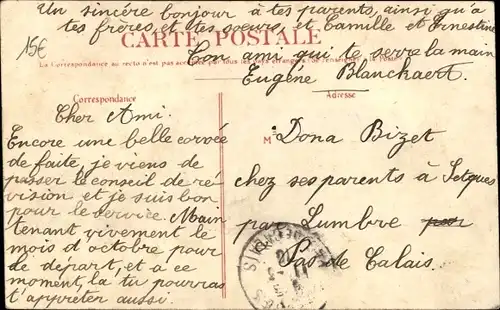 Un sincère bonjour à tes parents, ainsi qu'a
tes frères et tes soeurs, et Camille et Ernestine
15€
CARTE POSTALE
Ton ami qui te serre la main
La Correspondance au recto n'est pas acceptée par tous les pays étrangers (Se renseigner à la Poste)
Eugène Blanckaert.
Correspondance
Adresse
Cher Ami.
Encore une belle corvée
de faite, je viens de
passer le conseil de ré
vision et je suis bon
pour le service. Main
tenant vivement le
mois d'octobre pour
de départ, et a ce
moment, la tu pourras
t'appreter aussi.
M Dona Bizet
chez ses parents à Setques
par Lumbre
Pas de Calais.